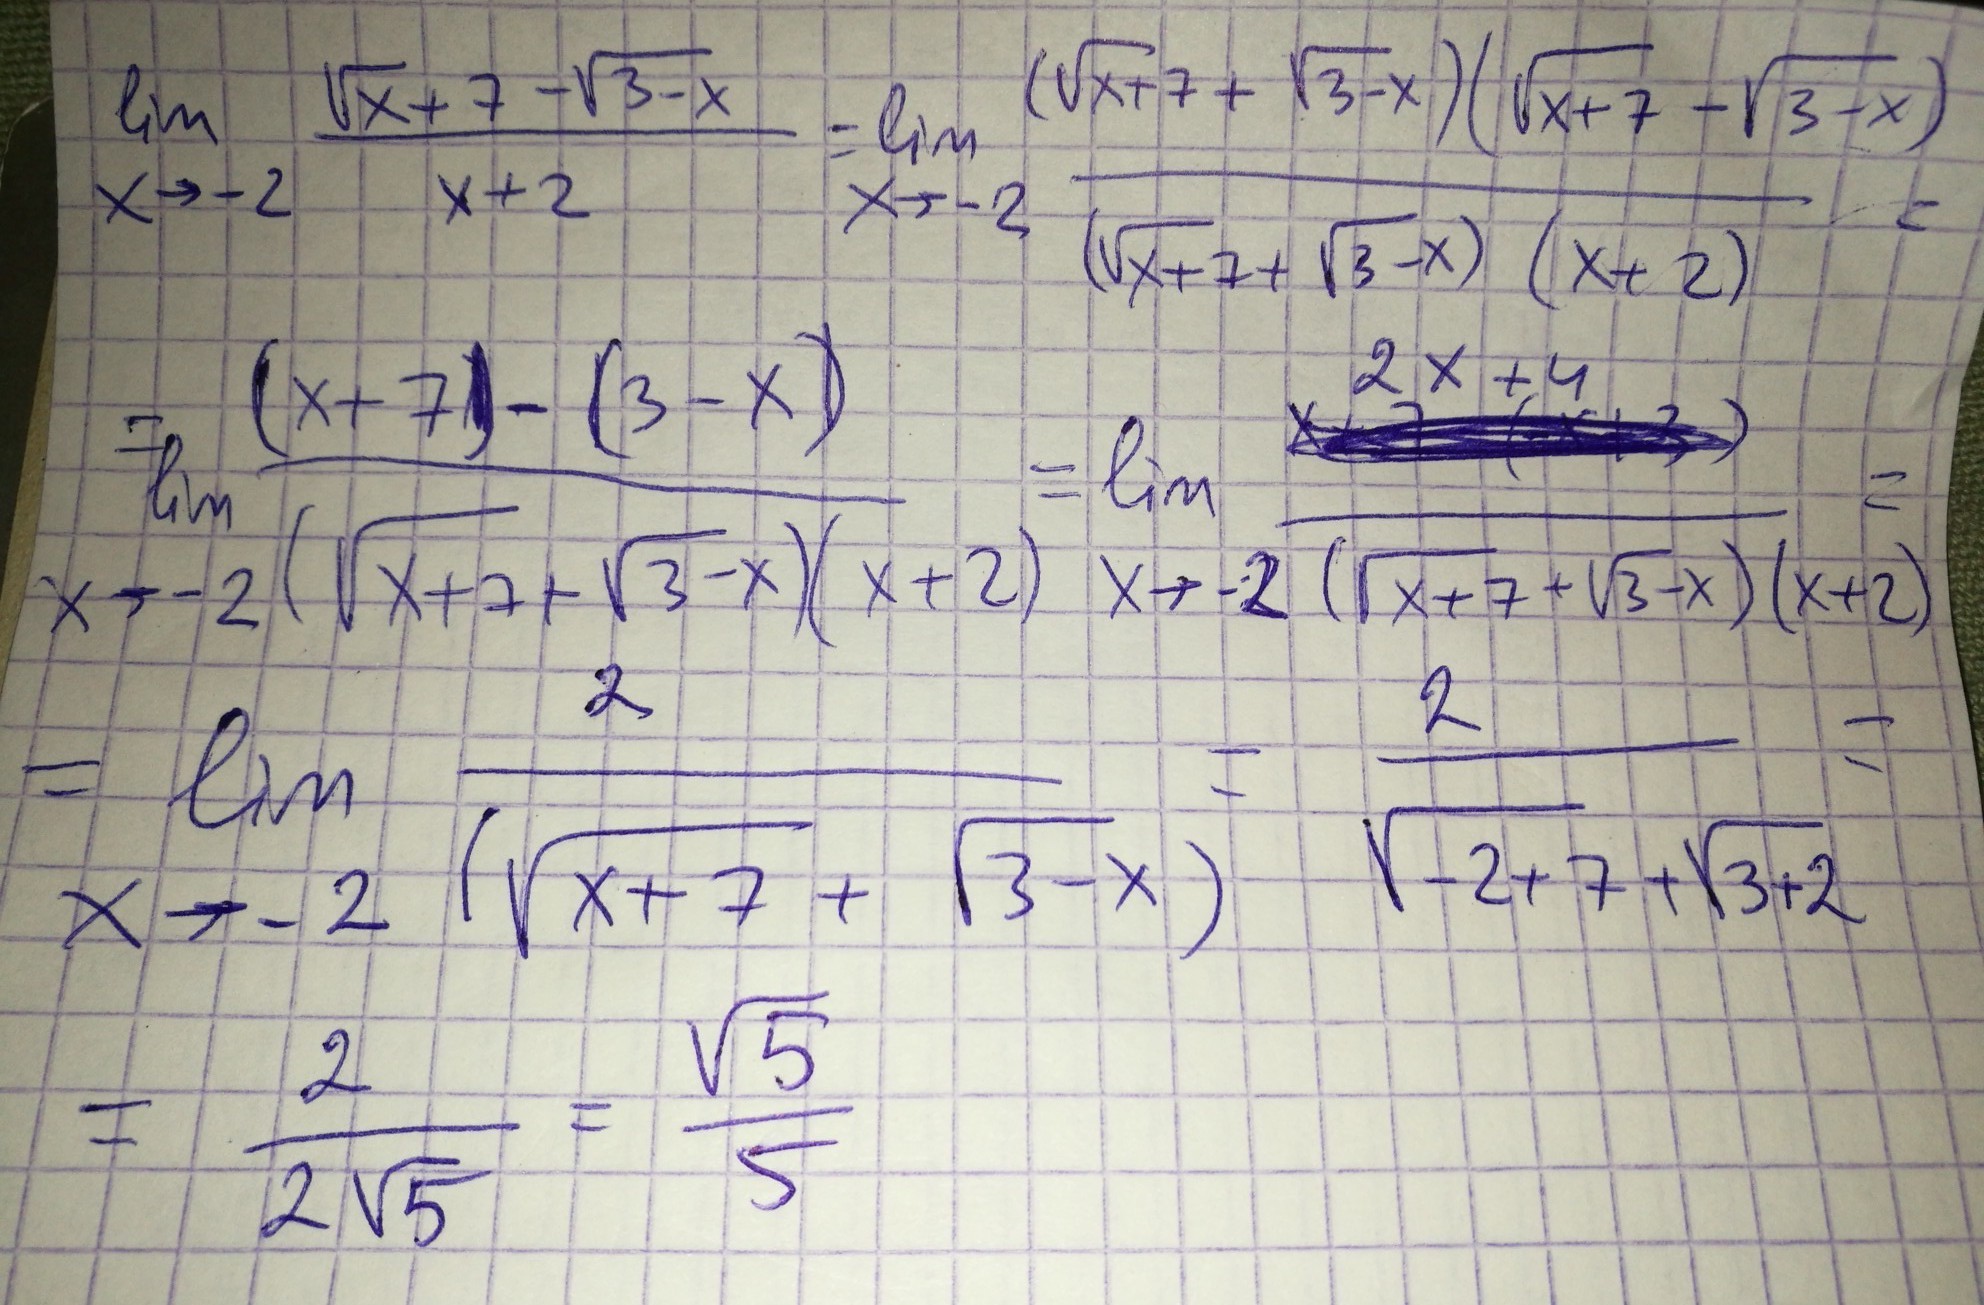 lim x→-2 (√x+7 - √3-x)/(x+2) = lim x→-2 ((√x+7 + √3-x)(√x+7 - √3-x))/((√x+7 + √3-x)(x+2)) =
= lim x→-2 ((x+7) - (3-x))/((√x+7 + √3-x)(x+2)) = lim x→-2 (2x+4)/((√x+7 + √3-x)(x+2)) =
= lim x→-2 2/(√x+7 + √3-x) = 2/(√-2+7 + √3+2) =
= 2/(2√5) = √5/5